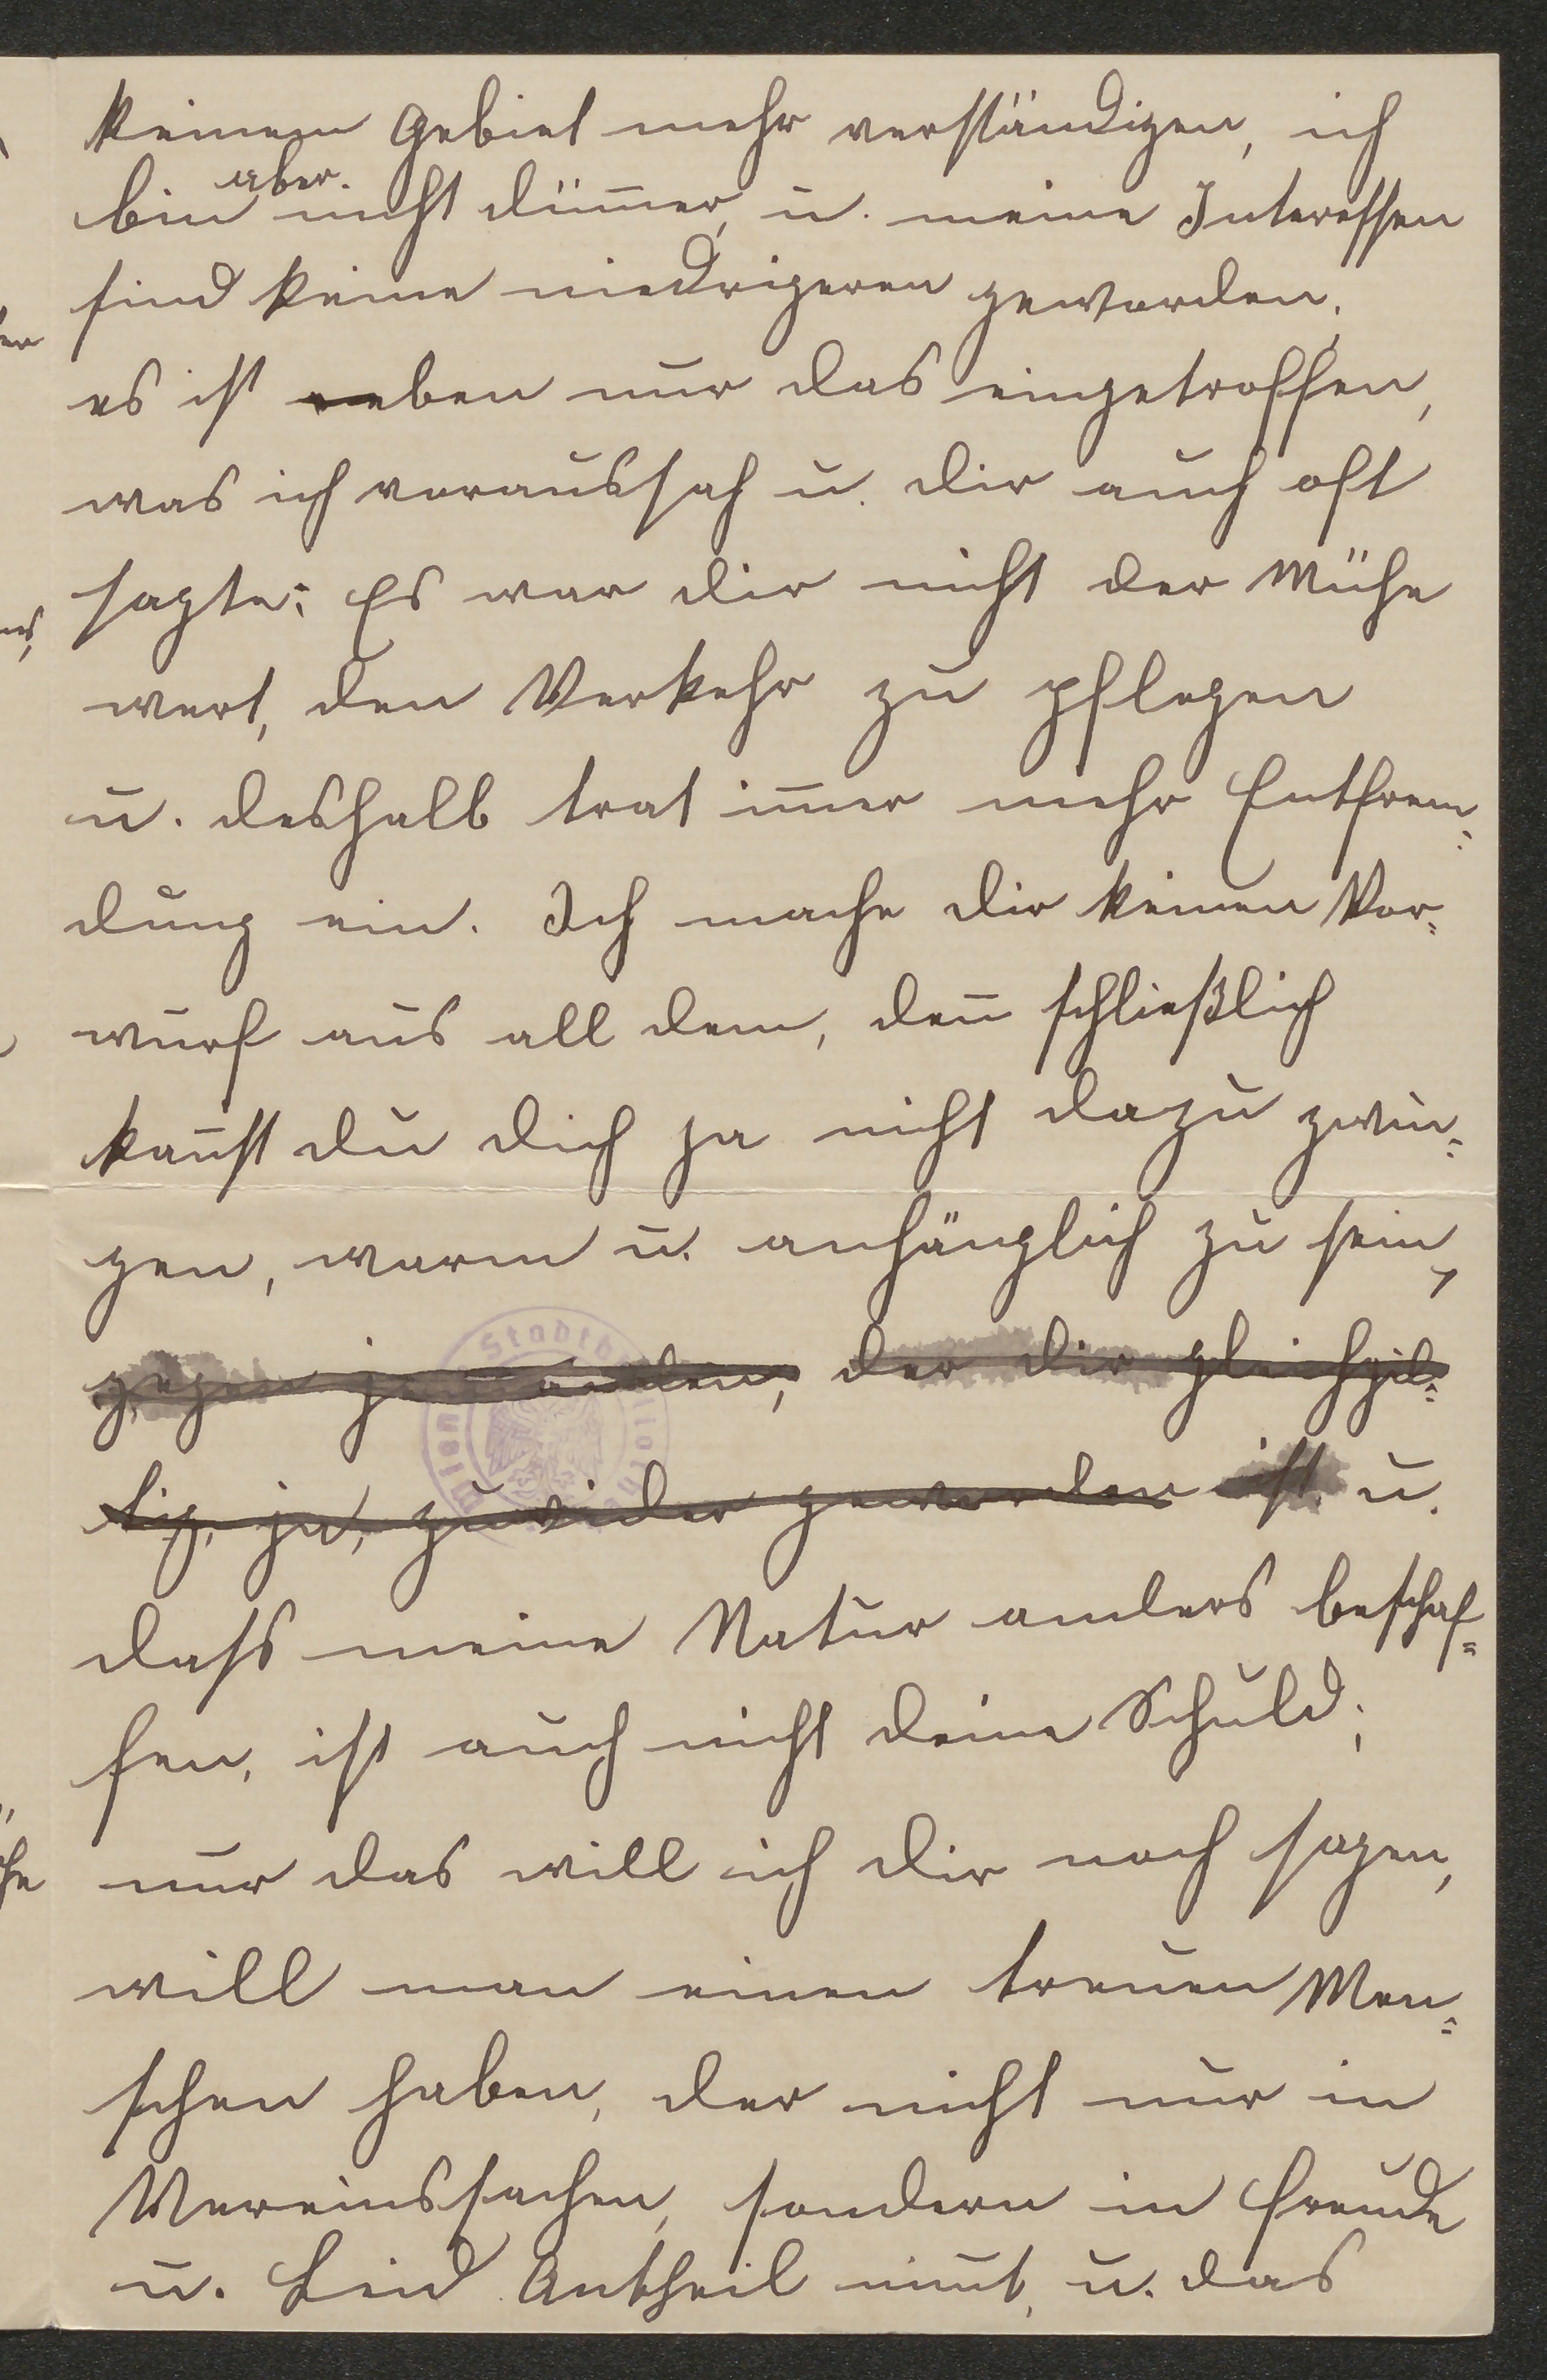 keinem Gebiet mehr verständigen, ich
aber
bin nicht dum̅er, u. meine Interessen
sind keine niedrigeren geworden,
es ist eben nur das eingetroffen,
was ich voraussah u. dir auch oft
sagte: Es war dir nicht der Mühe
wert, den Verkehr zu pflegen
u. deshalb trat im̅er mehr Entfrem=
dung ein. Ich mache dir keinen Vor=
wurf aus all dem, den̅ schließlich
kan̅st du dich ja nicht dazu zwin=
gen, warm u. anhänglich zu sein,
gegen jemanden, der dir gleichgil=
tig, ja, zuwider geworden ist u.
dass meine Natur anders beschaf=
fen, ist auch nicht deine Schuld;
nur das will ich dir noch sagen,
will man einen treuen Men=
schen haben, der nicht nur in
Vereinssachen, sondern in Freude
u. Leid Antheil nim̅t, u. das